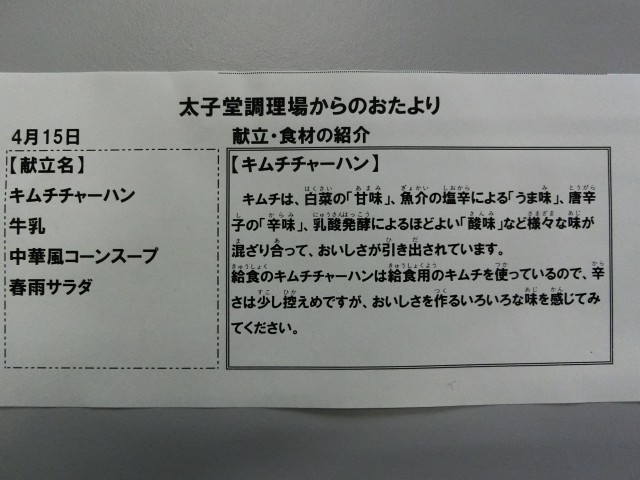 太子堂調理場からのおたより
4月15日
献立・食材の紹介
【献立名】
キムチチャーハン
牛乳
中華風コーンスープ
春雨サラダ
【キムチチャーハン】
キムチは、白菜の「甘味」、魚介の塩辛による「うま味」、唐辛
子の「辛味」、乳酸発酵によるほどよい「酸味」など様々な味が
混ざり合って、おいしさが引き出されています。
給食のキムチチャーハンは給食用のキムチを使っているので、辛
さは少し控えめですが、おいしさを作るいろいろな味を感じてみ
てください。